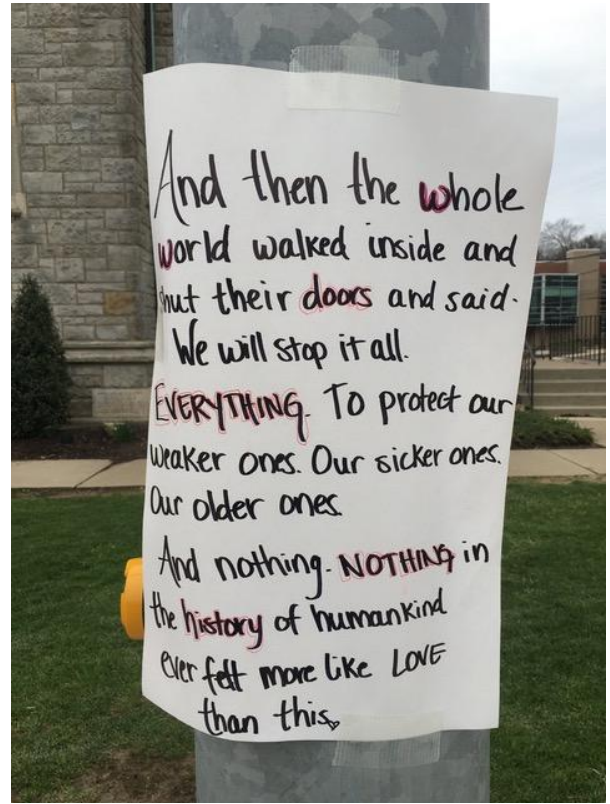 And then the whole
world walked inside and
shut their doors and said-
We will stop it all.
EVERYTHING. To protect our
weaker ones. Our sicker ones.
Our older ones.
And nothing. NOTHING in
the history of humankind
ever felt more like LOVE
than this.